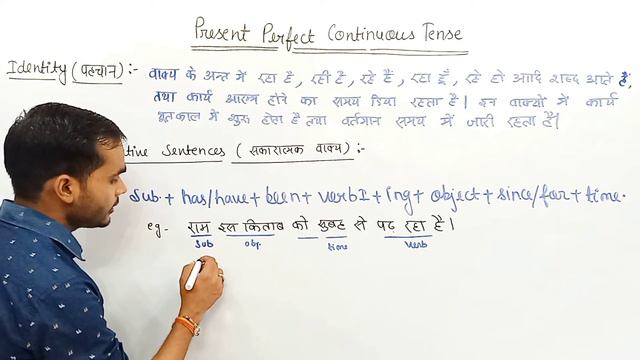 Present Perfect Continuous Tense
Identity (पहचान) :- वाक्य के अन्त में रहा है, रही है, रहे हैं, रहा हूँ, रहे हो आदि शब्द आते हैं,
तथा कार्य आरम्भ होने का समय दिया रहता है। इन वाक्यों में कार्य
भूतकाल में शुरू होता है तथा वर्तमान समय में जारी रहता है।
tive Sentences (सकारात्मक वाक्य) :-
Sub. + has/have + been + verb I + ing + object + since/for + time.
eg.- राम इस किताब को सुबह से पढ़ रहा है।
Sub obj. time verb